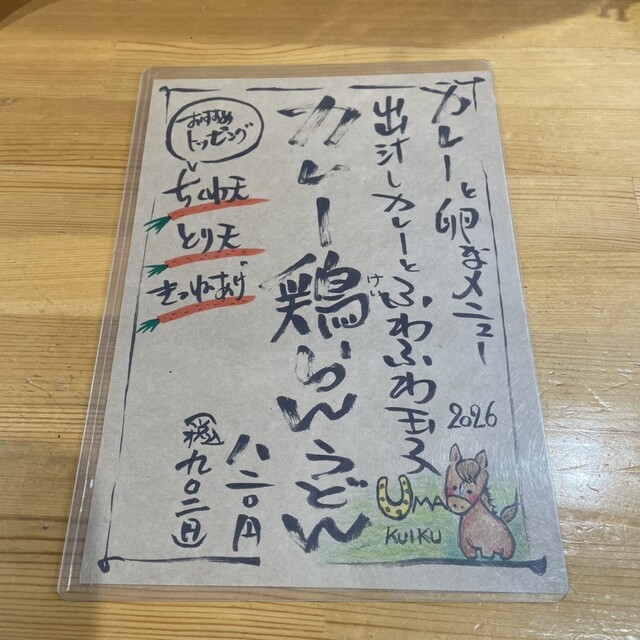 カレーと卵なメニュー
出汁しカレーとふわふわ玉子
カレー鶏らんうどん
けい
おすすめ
トッピング
ちくわ天
とり天
きつねあげ
八二〇円
(税込)
九〇二円
2026
UMA
KUIKU